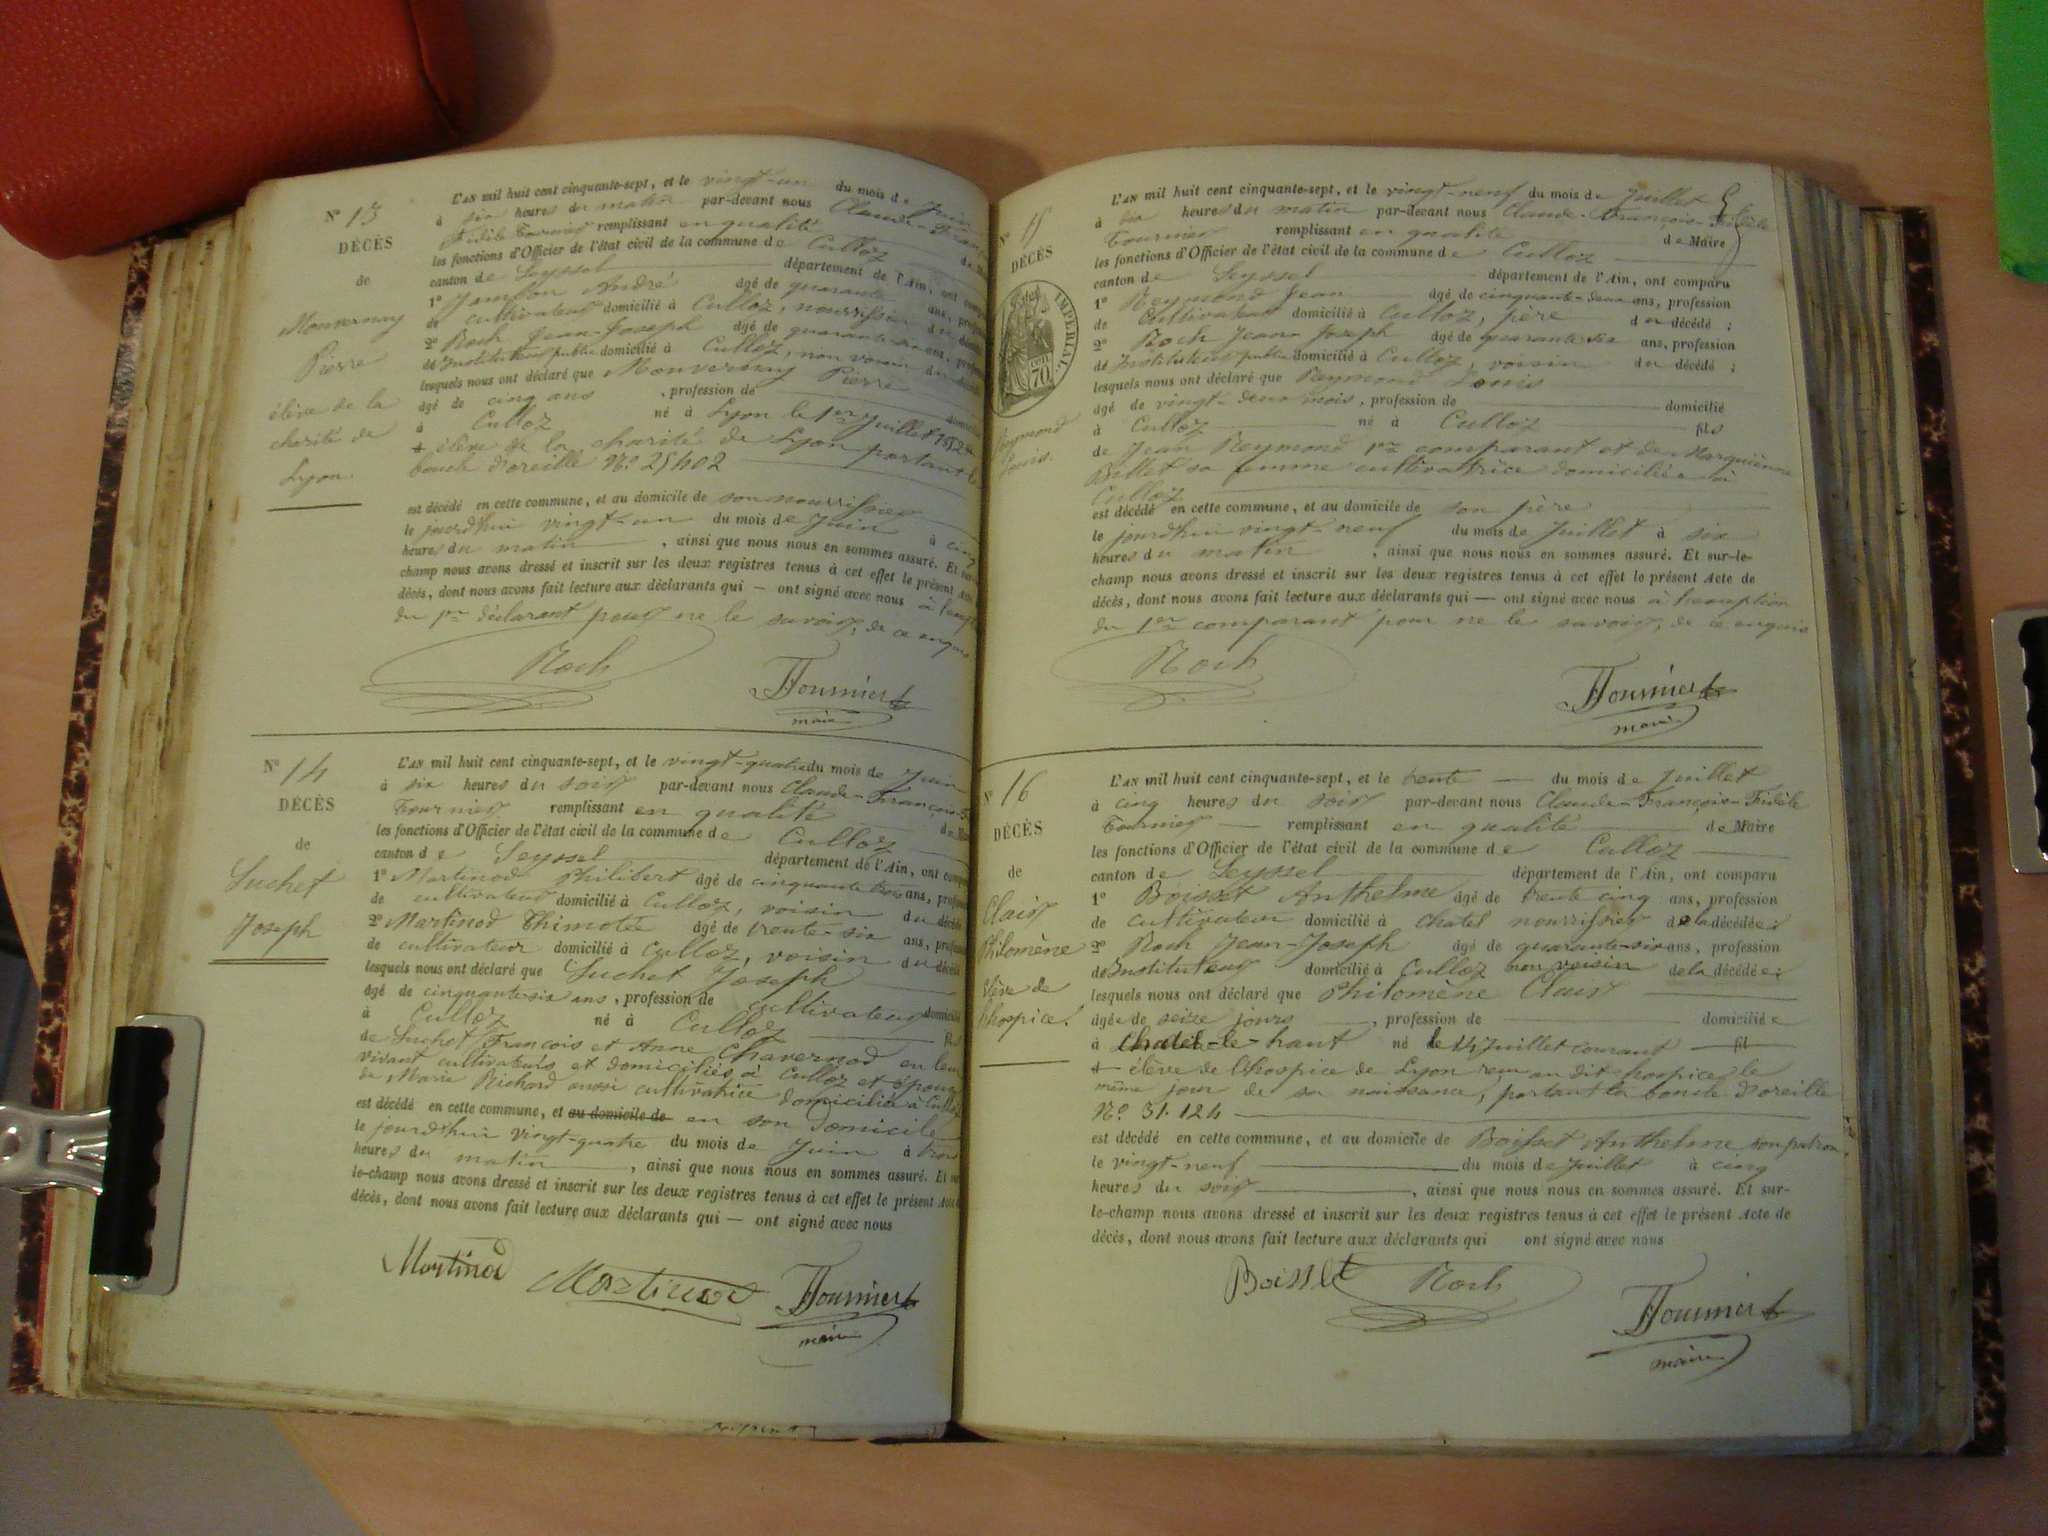 Nº 13
DÉCÈS
de
Monvernay
Pierre
élève de la
charité de
Lyon.
L'AN mil huit cent cinquante-sept, et le vingt-un du mois de Juin
à six heures du matin par-devant nous Claude-
Fidèle Fournier remplissant en qualité
les fonctions d'Officier de l'état civil de la commune de Culloz
canton de Seyssel département de l'Ain, ont
1º Jambon André âgé de quarante ans,
de cultivateur domicilié à Culloz, nourrissier du
2º Roch Jean-Joseph âgé de quarante-six ans,
de Instituteur public domicilié à Culloz, non voisin du
lesquels nous ont déclaré que Monvernay Pierre
âgé de cinq ans , profession de
à Culloz né à Lyon le 1er Juillet 1852
+ élève de la charité de Lyon portant la
bouch d'oreille Nº 25402
est décédé en cette commune, et au domicile de son nourrissier
le jourd'hui vingt-un du mois de Juin à cinq
heures du matin , ainsi que nous nous en sommes assuré. Et
champ nous avons dressé et inscrit sur les deux registres tenus à cet effet le présent Acte
décès, dont nous avons fait lecture aux déclarants qui — ont signé avec nous à
du 1er déclarant pour ne le savoir, de ce enquis
Roch
Fournier f
maire
Nº 14
DÉCÈS
de
Suchet
Joseph
L'AN mil huit cent cinquante-sept, et le vingt-quatre du mois de Juin
à six heures du soir par-devant nous Claude-François-
Fournier remplissant en qualité de
les fonctions d'Officier de l'état civil de la commune de Culloz
canton de Seyssel département de l'Ain, ont
1º Martinod Philibert âgé de cinquante trois ans,
de cultivateur domicilié à Culloz, voisin du décédé
2º Martinod Thimotée âgé de trente-six ans,
de cultivateur domicilié à Culloz, voisin du décédé
lesquels nous ont déclaré que Suchet Joseph
âgé de cinquante six ans, profession de cultivateur domicilié
à Culloz né à Culloz fils
de Suchet François et Anne Chavernod en leur
vivant cultivateurs et domiciliés à Culloz et époux
de Marie Richard aussi cultivatrice domiciliée à Culloz
est décédé en cette commune, et au domicile de en son domicile
le jourd'hui vingt-quatre du mois de Juin à trois
heures du matin , ainsi que nous nous en sommes assuré. Et
le-champ nous avons dressé et inscrit sur les deux registres tenus à cet effet le présent Acte
décès, dont nous avons fait lecture aux déclarants qui — ont signé avec nous
Martinod
Martinod
Fournier f
maire
Nº 15
DÉCÈS
IMPÉRIAL
70
Reymond
Louis.
L'AN mil huit cent cinquante-sept, et le vingt-neuf du mois de Juillet
à six heures du matin par-devant nous Claude-François-Fidèle
Fournier remplissant en qualité de Maire
les fonctions d'Officier de l'état civil de la commune de Culloz
canton de Seyssel département de l'Ain, ont comparu
1º Reymond Jean âgé de cinquante-deux ans, profession
de cultivateur domicilié à Culloz, père du décédé ;
2º Roch Jean Joseph âgé de quarante six ans, profession
de Instituteur public domicilié à Culloz, voisin du décédé ;
lesquels nous ont déclaré que Reymond Louis
âgé de vingt-deux mois, profession de domicilié
à Culloz né à Culloz fils
de Jean Reymond 1er comparant et de
Billet sa femme cultivatrice domiciliée à
Culloz
est décédé en cette commune, et au domicile de son père
le jourd'hui vingt-neuf du mois de Juillet à six
heures du matin , ainsi que nous nous en sommes assuré. Et sur-le-
champ nous avons dressé et inscrit sur les deux registres tenus à cet effet le présent Acte de
décès, dont nous avons fait lecture aux déclarants qui — ont signé avec nous à
du 1er comparant pour ne le savoir, de ce enquis
Roch
Fournier f
maire
Nº 16
DÉCÈS
de
Clair
Philomène
élève de
l'hospice.
L'AN mil huit cent cinquante-sept, et le trente — du mois de Juillet
à cinq heures du soir par-devant nous Claude-François-Fidèle
Fournier — remplissant en qualité de Maire
les fonctions d'Officier de l'état civil de la commune de Culloz
canton de Seyssel département de l'Ain, ont comparu
1º Boisset Anthelme âgé de trente cinq ans, profession
de cultivateur domicilié à Chatel nourrissier de la décédée ;
2º Roch Jean-Joseph âgé de quarante-six ans, profession
de Instituteur domicilié à Culloz non voisin de la décédée ;
lesquels nous ont déclaré que Philomène Clair
âgée de seize jours , profession de domiciliée
à Chatel-le-haut né le 14 Juillet courant fil
+ élève de l'hospice de Lyon reçu au dit hospice le
même jour de sa naissance, portant la boucle d'oreille
Nº 31.124
est décédé en cette commune, et au domicile de Boisset Anthelme son patron,
le vingt-neuf du mois de Juillet à cinq
heures du soir , ainsi que nous nous en sommes assuré. Et sur-
le-champ nous avons dressé et inscrit sur les deux registres tenus à cet effet le présent Acte de
décès, dont nous avons fait lecture aux déclarants qui ont signé avec nous
Boisset
Roch
Fournier f
maire